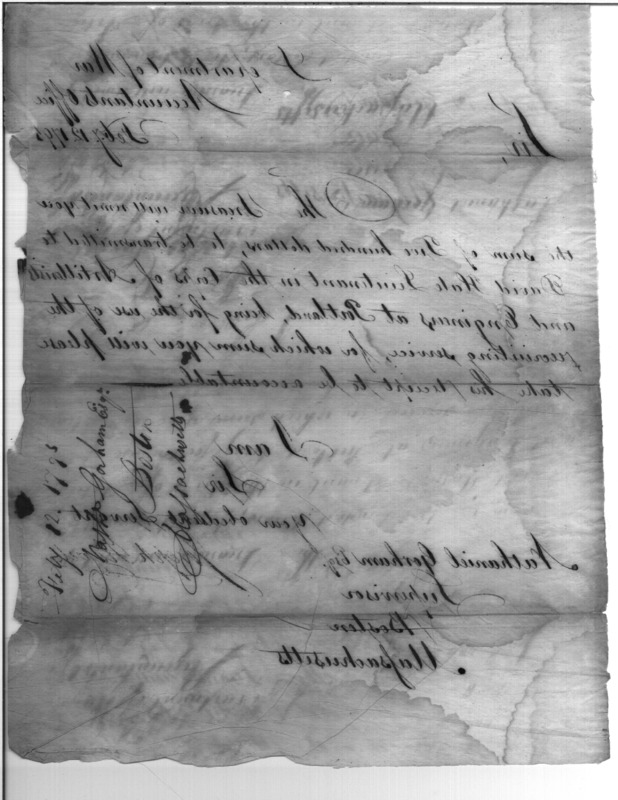 Department of War
Accountants Office
Feby. 12. 1795
Sir,
The Treasurer will remit you
the sum of Five hundred dollars, to be transmitted to
David Hale Lieutenant in the Corps of Artillerists
and Engineers at Portland, being for the use of the
recruiting service, for which sum you will please
take his receipt to be accountable
I am
Sir
Your obedient Servant
Nathaniel Gorham Esq.
Supervisor
Boston
Massachusetts
Feby. 12. 1795
Gorham Esqr.
Boston
Massachusetts